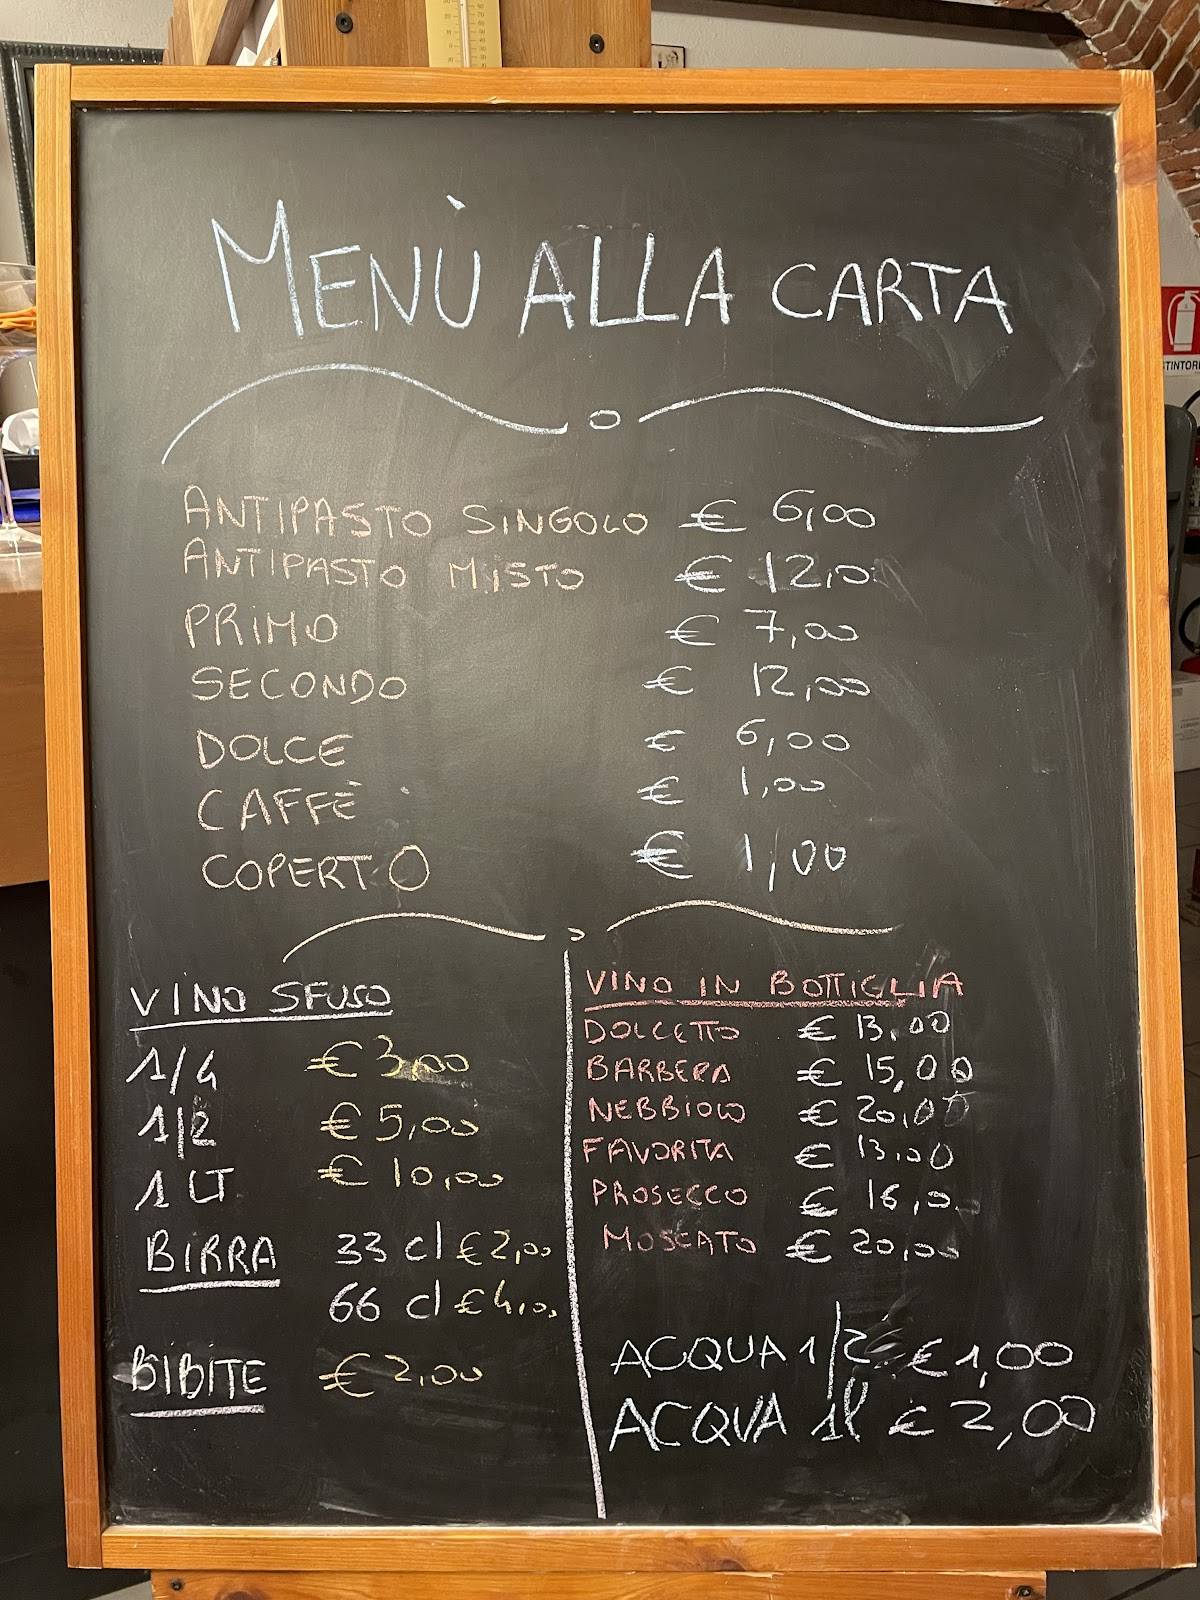 MENÙ ALLA CARTA
ANTIPASTO SINGOLO € 6,00
ANTIPASTO MISTO € 12,0
PRIMO € 7,00
SECONDO € 12,00
DOLCE € 6,00
CAFFÈ € 1,00
COPERTO € 1,00
VINO SFUSO
1/4 € 3,00
1/2 € 5,00
1 LT € 10,00
BIRRA 33 cl € 2,00
66 cl € 4,00
BIBITE € 2,00
VINO IN BOTTIGLIA
DOLCETTO € 13,00
BARBERA € 15,00
NEBBIOLO € 20,00
FAVORITA € 13,00
PROSECCO € 16,0
MOSCATO € 20,00
ACQUA 1/2 € 1,00
ACQUA 1l € 2,00